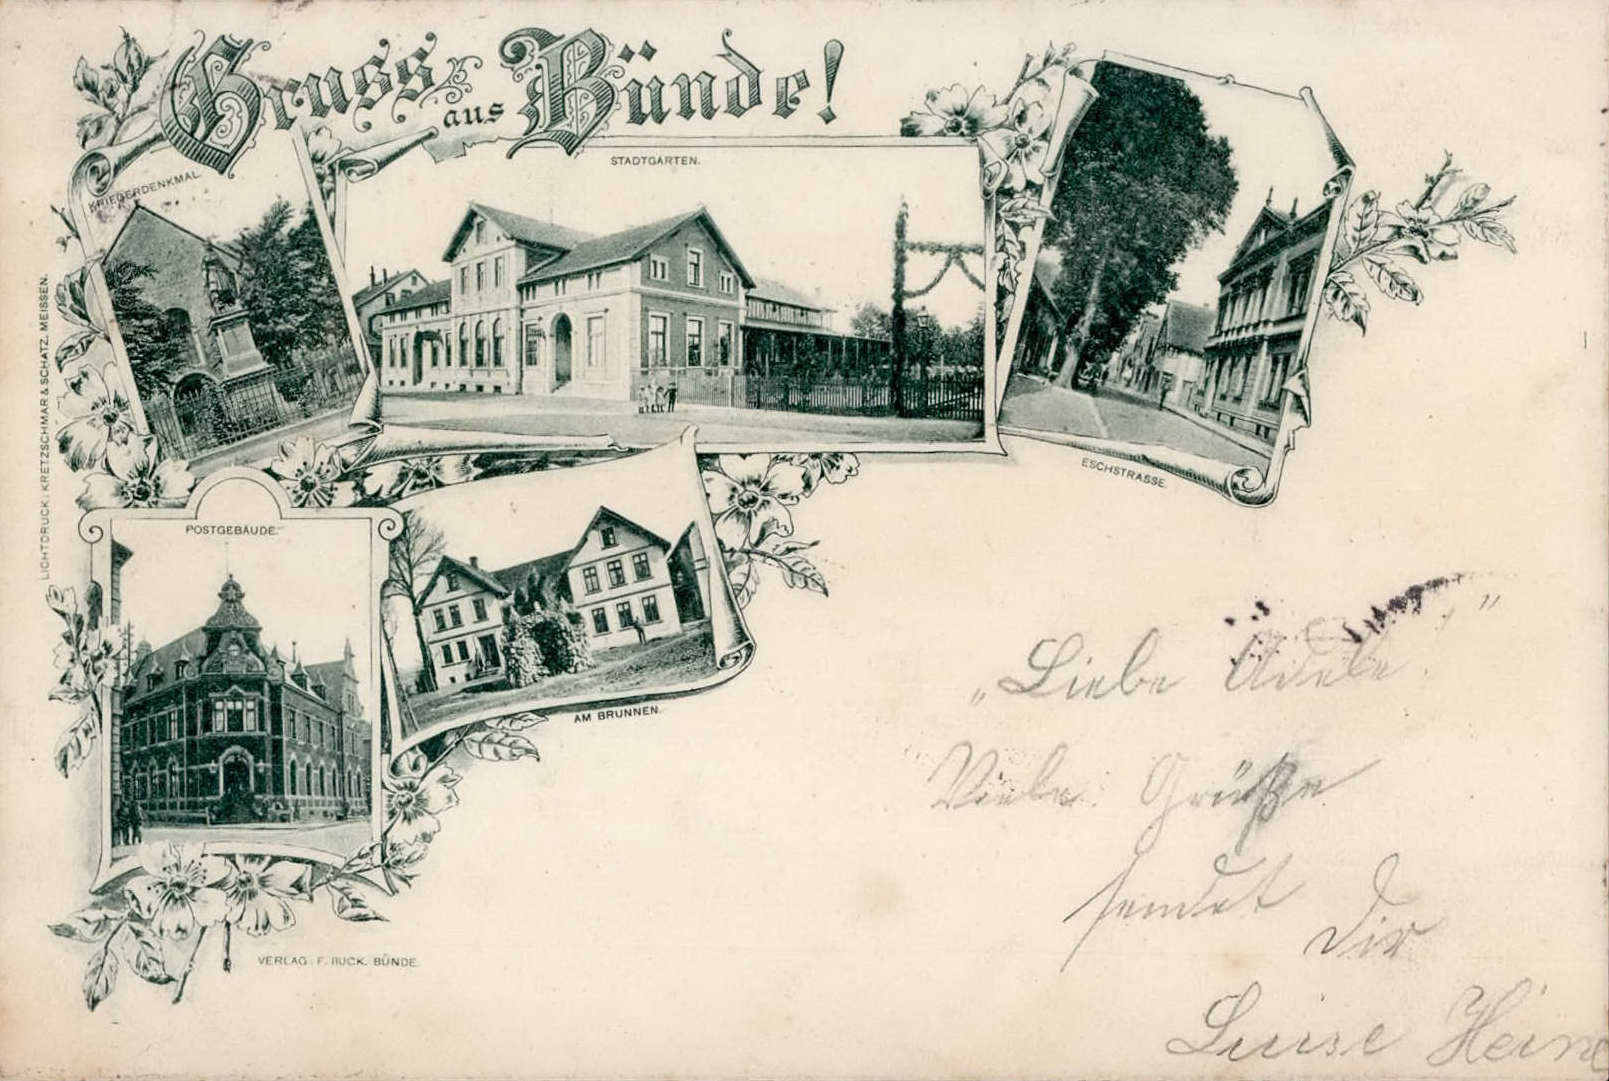 Gruss aus Bünde!
KRIEGERDENKMAL.
STADTGARTEN.
ESCHSTRASSE.
POSTGEBÄUDE.
AM BRUNNEN.
LICHTDRUCK: KRETZSCHMAR & SCHATZ. MEISSEN.
VERLAG: F. RUCK. BÜNDE.
„Liebe Adele."
Viele Grüße
sendet
Dir
Luise